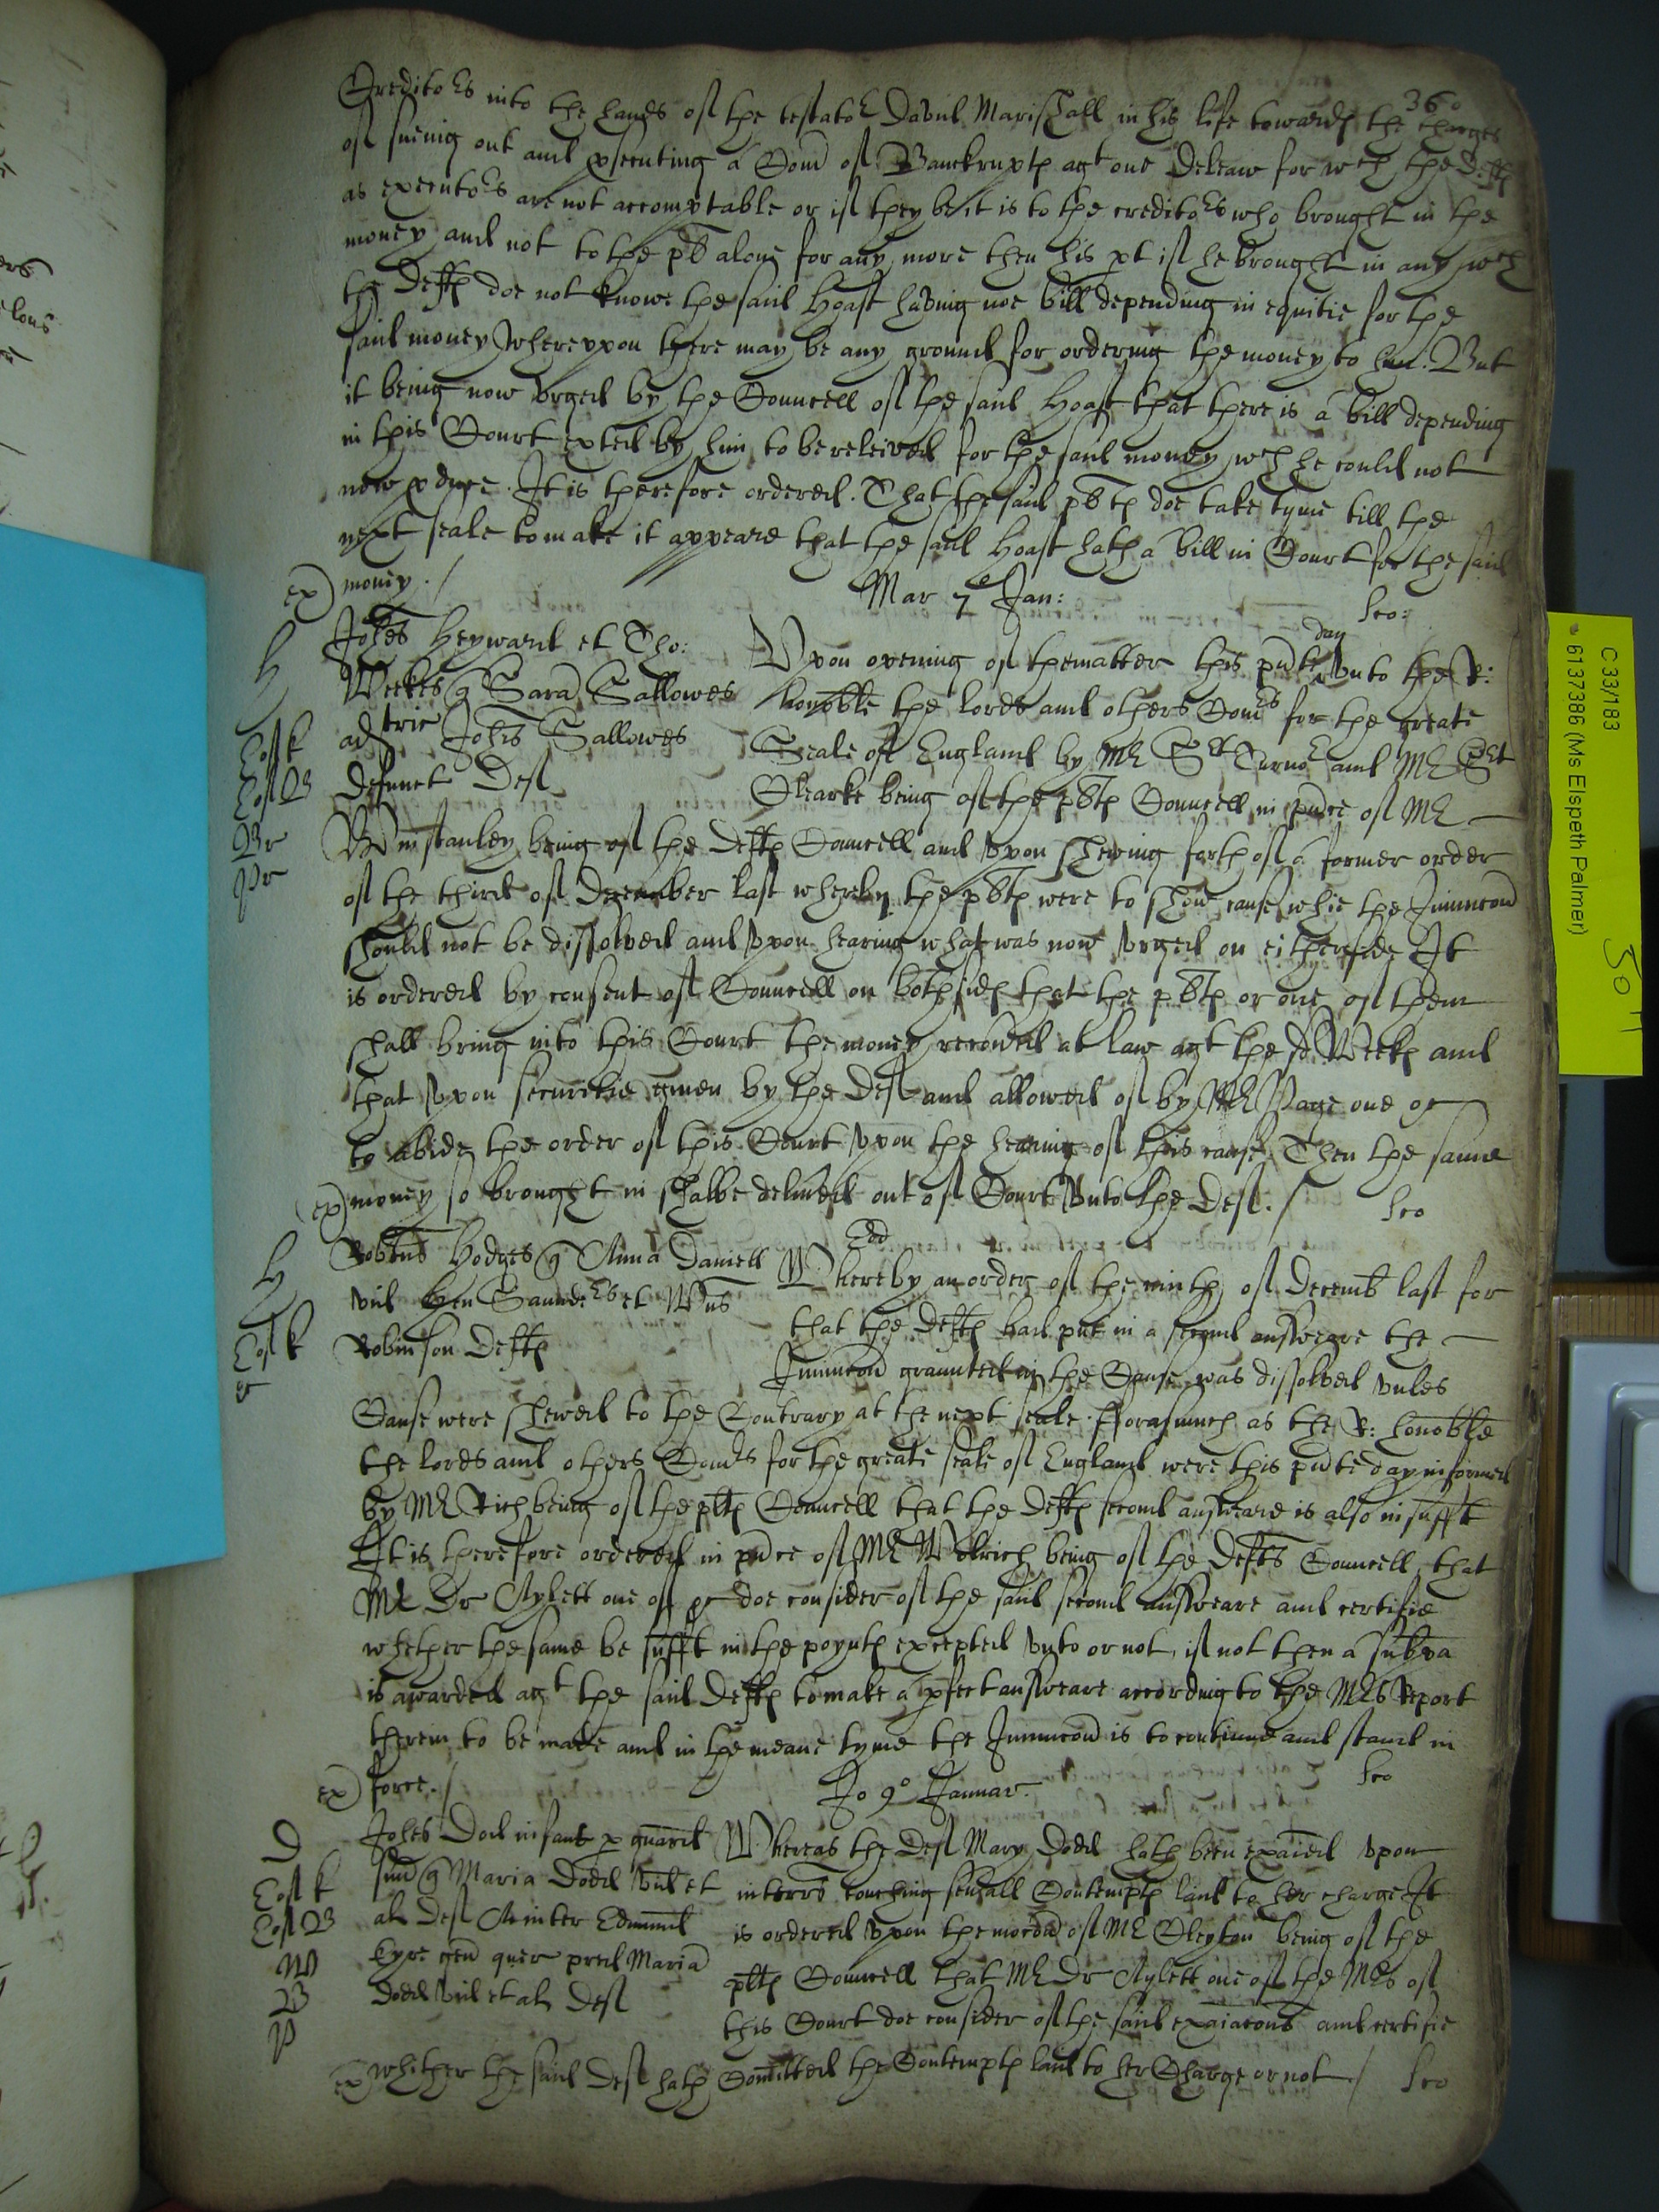 360
Creditors into the hands of the testator David Marishall in his life towards the charges
of sueing out and prsecuting a Com of Banckrupts agt one Deleaw for wch the Defts
as executors are not accomptable or if they be it is to the creditors who brought in the
money and not to the plt alone for any more then his pt if he brought in any wch
the Defts doe not knowe the said Hoast having noe bill depending in equitie for the
said money Whereuppon there may be any ground for ordering the money to him. But
it being now urged by the Councell of the said Hoast that there is a bill depending
in this Court exted by him to be releived for the said money wch he could not
now pduce. It is therefore ordered. That the said plts doe take tyme till the
next seale to make it appeare that the said Hoast hath a bill in Court for the said
ex) money. /
Mar 7 Jan:
Johes Heyward et Tho:
Weekes q Sara Sallowes
adtric Johis Sallowes
defunct Def
Upon opening of the matter this pnte day unto the R:
honoble the lords and others Comrs for the greate
Seale of England by Mr Sert Turnor and Mr Sert
Clearke being of the plts Councell in pnce of Mr
Winstanley being of the Defts Councell and upon shewing forth of a former order
of the third of December last whereby the plts were to shew cause whie the Iniunccon
should not be dissolved and upon hearing what was now urged on either side It
is ordered by consent of Councell on both sides that the plts or one of them
shall bring into this Court the money recoved at law agt the sd Weeks and
that upon securitie given by the Def and allowed of by Mr Page one &c
to abide the order of this Court upon the hearing of this cause Then the same
ex) money so brought in shalbe delived out of Court unto the Def. /
Eod
Robtus Hodges q Anna Daniell
vid Hen Saunders et Wms
Robinson Defts
Whereby an order of the ninth of Decemb last for
that the Defts had put in a second answeare the
Iniunccon graunted in the Cause was dissolved unles
Cause were shewed to the Contrary at the next seale. Fforasmuch as the R: honoble
the lords and others Comrs for the greate seale of England were this pnte day informed
by Mr Rich being of the plts Councell that the Defts second answeare is also insufft
It is therefore ordered in pnce of Mr Wolrich being of the Defts Councell that
Mr Dr Aylett one of &c doe consider of the said second answeare and certifie
whether the same be sufft in the poynts excepted unto or not, if not then a subpa
is awarded agt the said Defts to make a pfect answeare according to the Mrs Report
therein to be made and in the meane tyme the Iniunccon is to continue and stand in
ex) force. /
Jo 9o Januar.
Johes Dod infans p guard
suu q Maria Dodd vid et
als Def Ac inter Edmund
Kyre gen quer pred Maria
Dodd vid et als Def
Whereas the Def Mary Dodd hath been examied upon
interrs touching severall Contempts laid to her charge It
is ordered upon the mocon of Mr Cleyton being of the
plts Councell that Mr Dr Aylett one of the Mrs of
this Court doe consider of the said examiacons and certifie
ex) whither the said Def hath Comitted the Contempts laid to her Charge or not /
C 33/183
6137386 (Ms Elspeth Palmer)